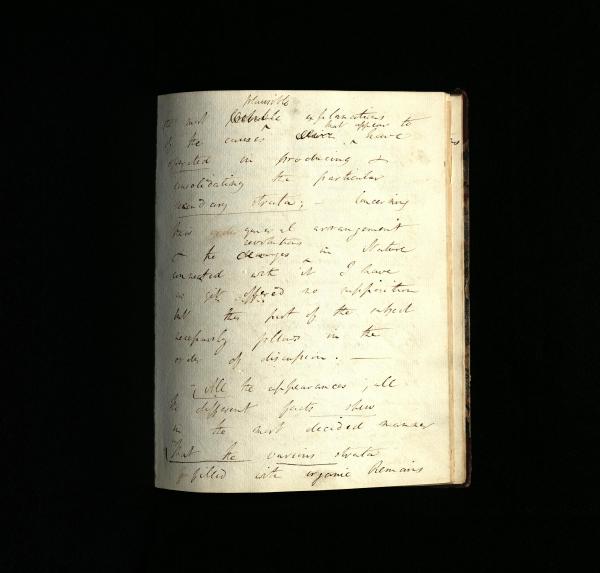 plausible
the most explanations
that appear to
of the causes have
operated in producing &
consolidating the particular
secondary strata; – Concerning
their general arrangement
revolutions
& the changes in Nature
connected with it I have
as yet offered no supposition
but this part of the subject
necessarily follows in the
order of discussion. —
All the appearances, all
the different facts shew
in the most decided manner
that the various strata
filled with organic Remains